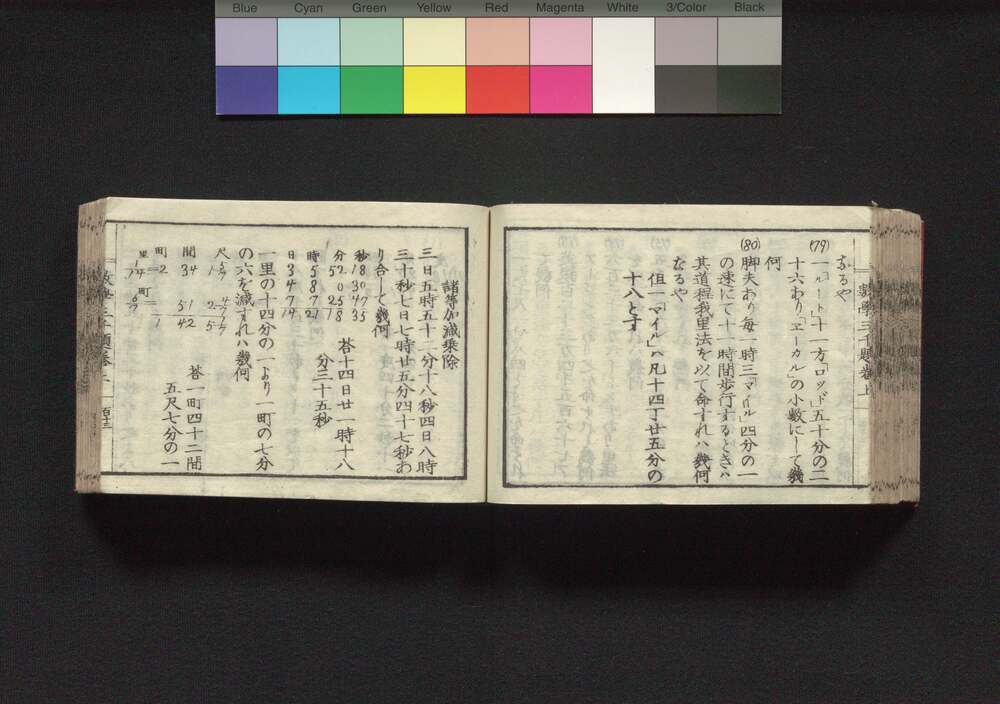 Blue Cyan Green Yellow Red Magenta White 3/Color Black
數學三千題卷上
なるや
(79) 一「ルート」十一方「ロッド」五十分の二
十六あり「ヱーカル」の小數にして幾
何
(80) 脚夫あり每一時三「マイル」四分の一
の速にて十一時間歩行するときハ
其道程我里法を以て命すれハ幾何
なるや
但一「マイル」ハ凡十四丁廿五分の
十八とす
諸等加減乘除
三日五時五十二分十八秒四日八時
三十秒七日七時廿五分四十七秒あ
り合して幾何
秒 18 30 47 35
分 52 0 25 18
時 5 8 7 21
日 3 4 7 14
答十四日廿一時十八
分三十五秒
一里の十四分の一より一町の七分
の六を減すれハ幾何
間 34 51 42
町 2 1
答一町四十二間
五尺七分の一